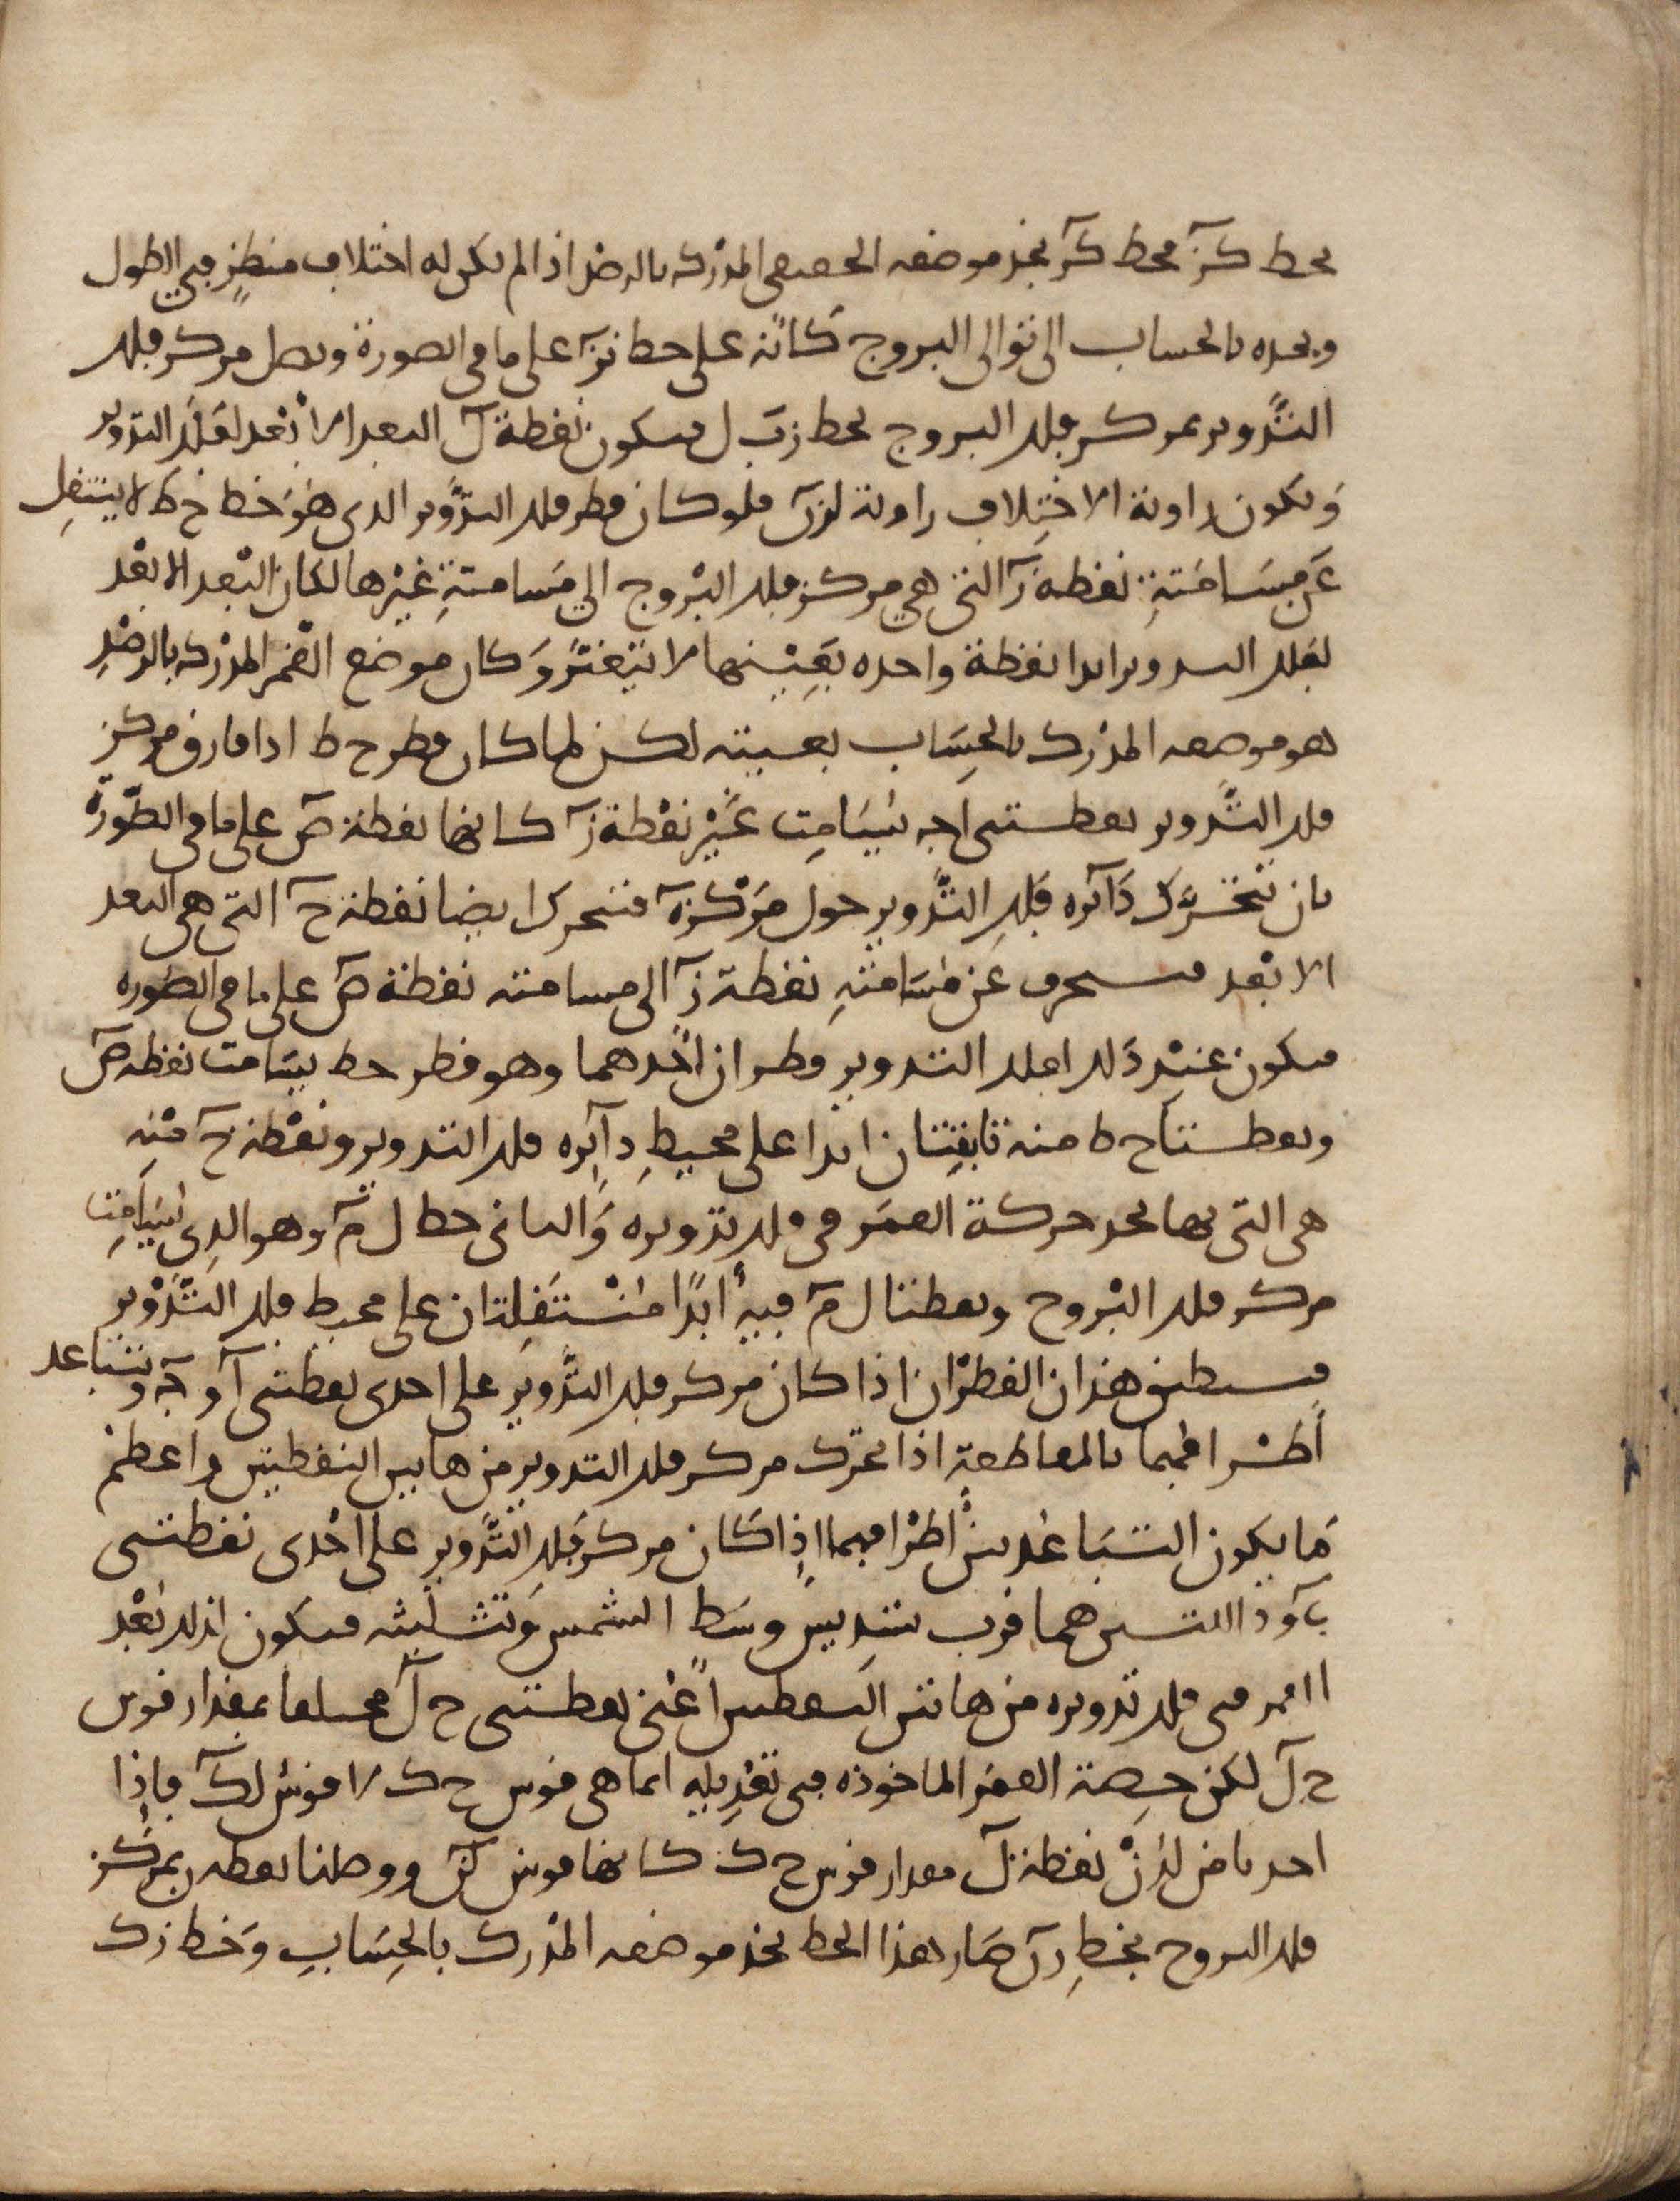 بخط كز فخط كز يحد موضعه الحقيقى المدرك بالرصد اذا لم يكن له اختلاف منظر في الطول
وبعده بالحساب الى توالى البروج كانه على خط نز على ما فى الصورة ونصل مركز فلك
التدوير بمركز فلك البروج بخط زب ل فيكون نقطة ل البعد الابعد لفلك التدوير
وتكون زاوية الاختلاف زاوية لزك فلو كان قطر فلك التدوير الذى هو خط ح ط لا ينتقل
عن مسامتة نقطة ز التى هي مركز فلك البروج الي مسامتة غيرها لكان البعد الابعد
لفلك التدوير ابدا نقطة واحده بعينها لا تتغير وكان موضع القمر المدرك بالرصد
هو موضعه المدرك بالحساب بعينه لكن لما كان قطر ح ط اذا فارق مركز
فلك التدوير نقطتى ا جه يسامت غير نقطة ز كانها نقطة ص على ما فى الصورة
بان تتحرك دائره فلك التدوير حول مركزه فتتحرك ايضا نقطة ح التى هى البعد
الابعد فتنحرف عن مسامتة نقطة ز الى مسامته نقطة ص على ما فى الصوره
فيكون عند ذلك لفلك التدوير قطران احدهما وهو قطر حط يسامت نقطه ص
ونقطتا ح ط منه ثابتتان ابدا على محيط دائره فلك التدوير ونقطة ح منه
هى التى بها تحد حركة القمر فى فلك تدويره والثانى خط ل م وهو الذى يسامت
مركز فلك البروج ونقطتا ل م فيه ابدًا منتقلتان على محيط فلك التدوير
فينطبق هذان القطران اذا كان مركز فلك التدوير على احدى نقطتى آ و جه وتتباعد
أطرافهما بالمقاطعة اذا تحرك مركز فلك التدوير من هاتين النقطتين واعظم
ما يكون التباعد بين اطرافهما اذا كان مركز فلك التدوير على احدى نقطتى
ب و د اللتين هما قرب تسديس وسط الشمس وتثليثه فيكون اذلك بعد
القمر فى فلك تدويره من هاتين النقطتين أعنى نقطتى ح ل مختلفا بمقدار قوس
ح ل لكن حصة القمر الماخوذه في تعديله انما هى قوس ح ك لا قوس ل ك فاذا
اخذنا من لدن نقطة ل مقدار قوس ح ك كانها قوس لن ووصلنا نقطه ن بمركز
فلك البروج بخط زن صار هذا الخط يحد موضعه المدرك بالحساب وخط زك